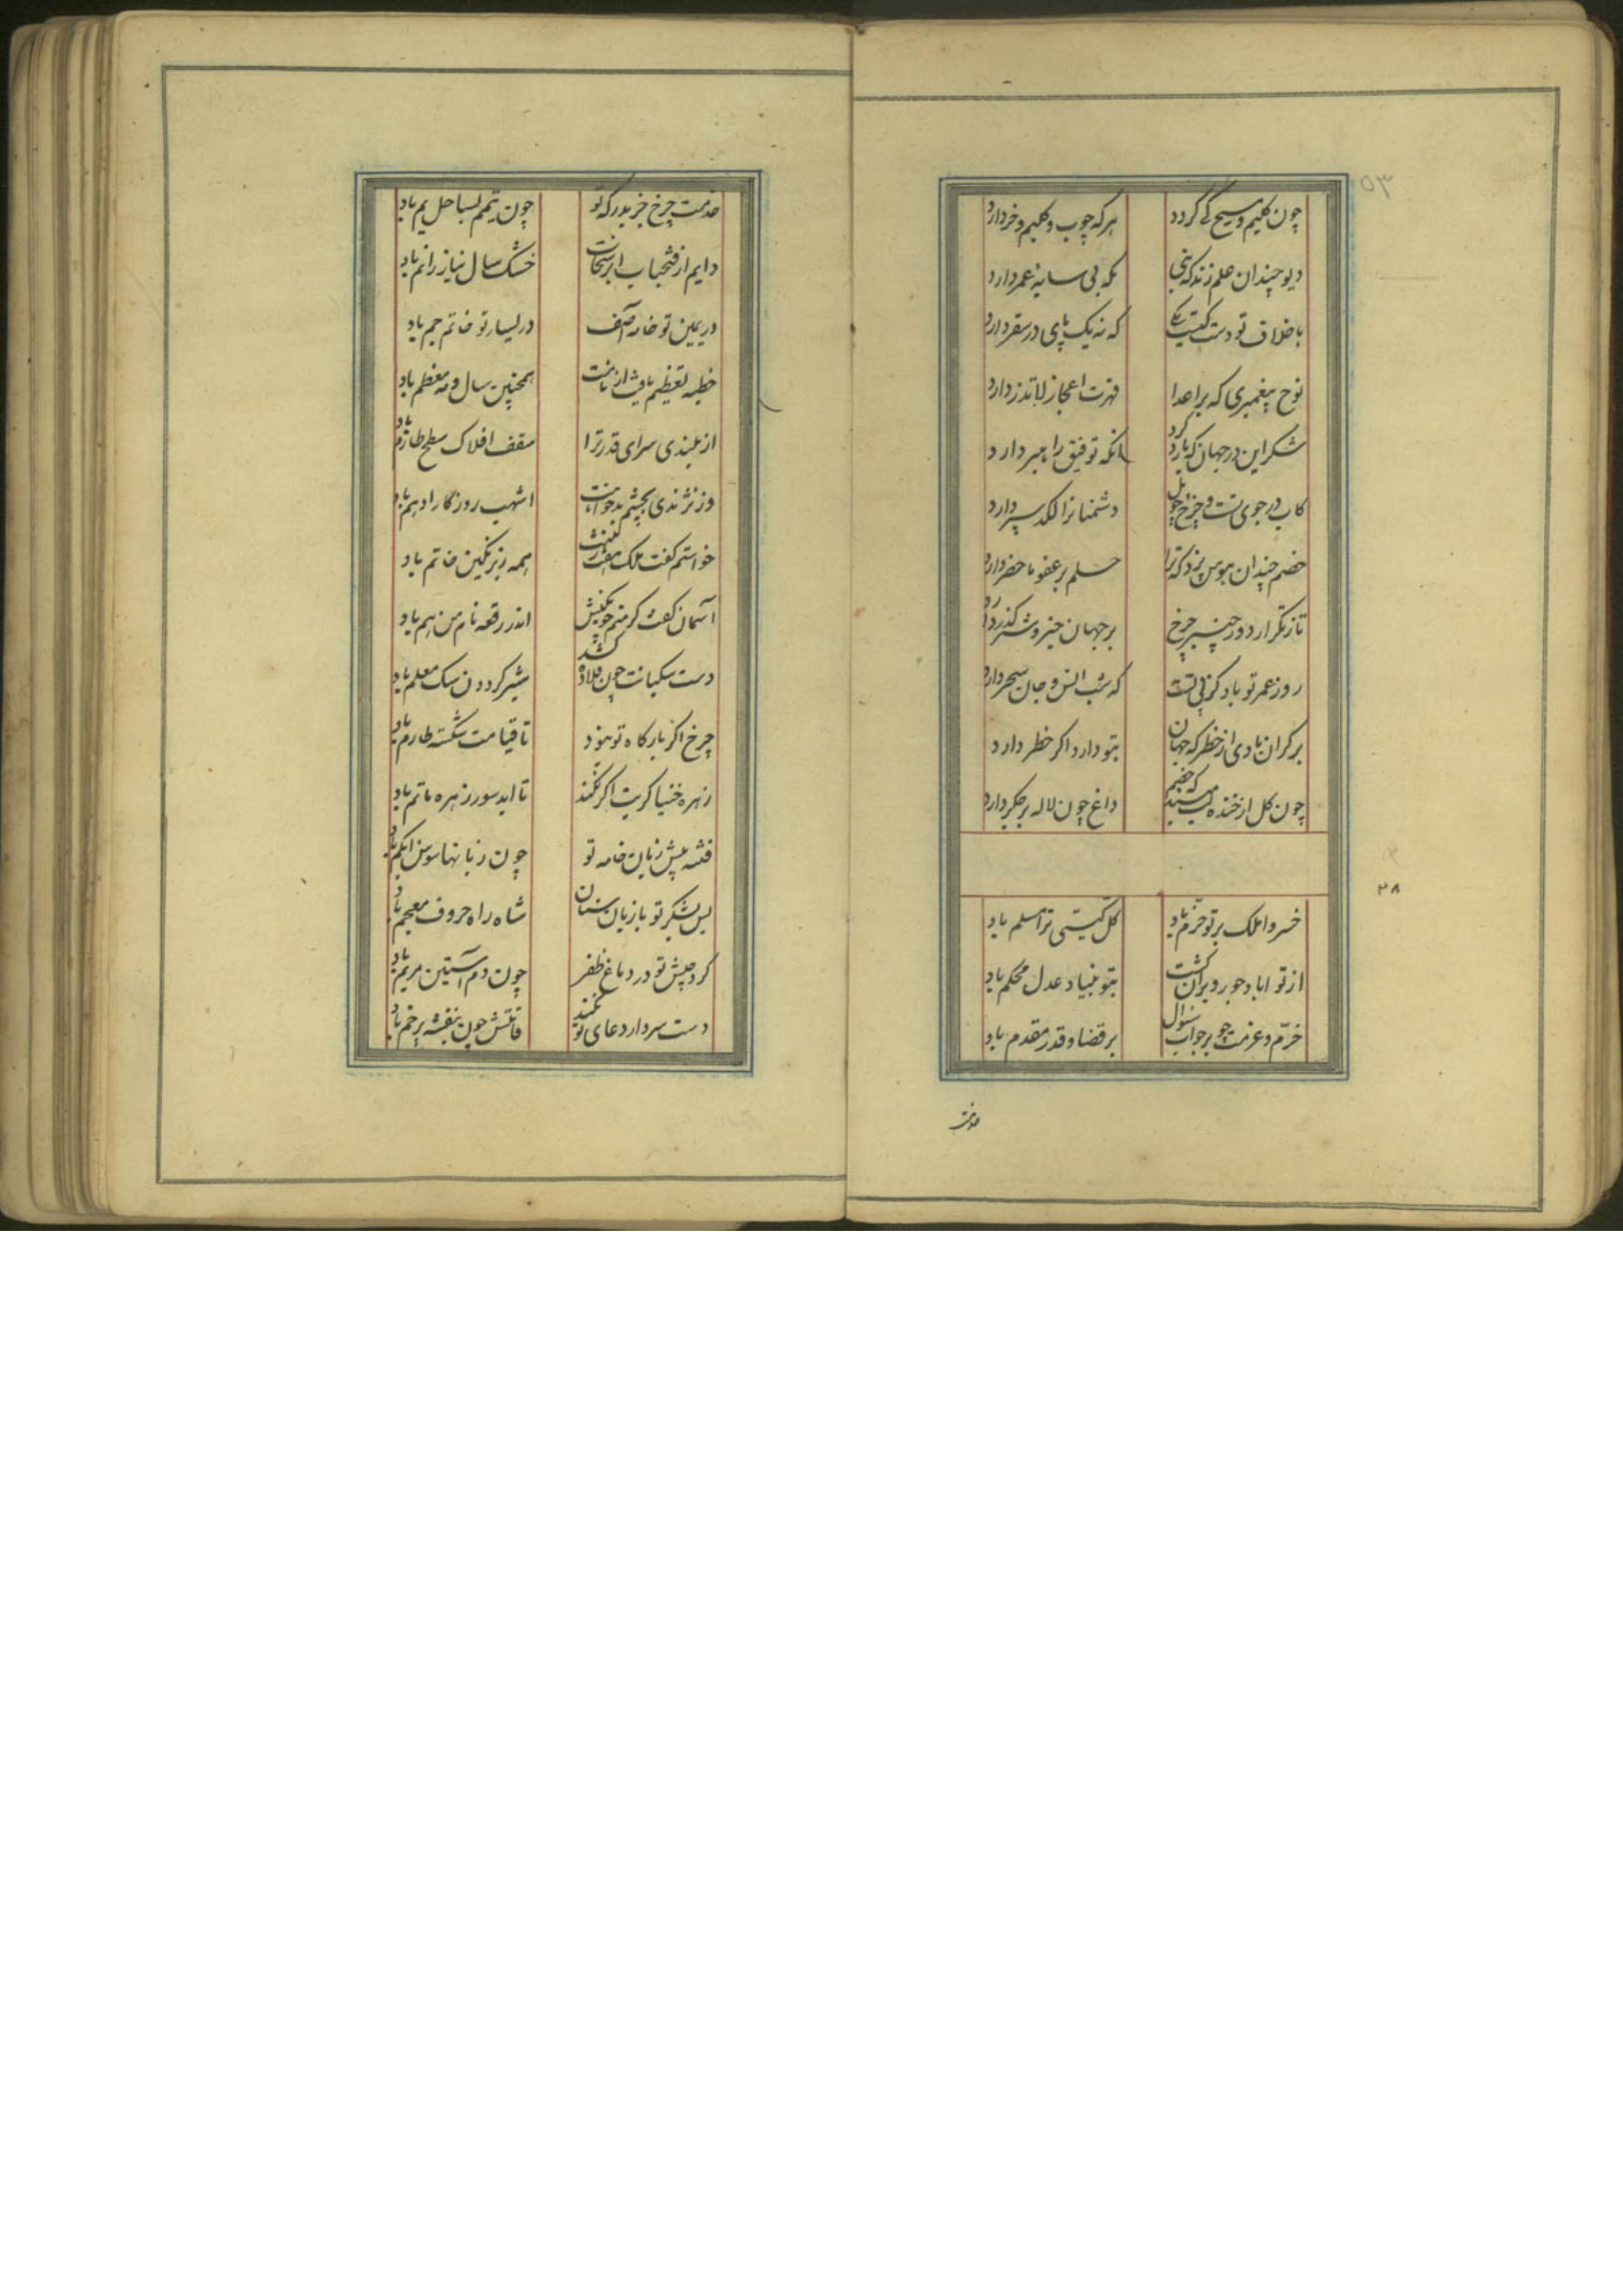 ۵۳
چون کلیم و مسیح کی گردد
هر که چوب و گلیم و خر دارد
دیو چندان علم زند که نبی
تکه بی سایهٔ عمر دارد
با خلاف تو دست کیست یکی
که نه یک پای در سقر دارد
نوح پیغمبری که بر اعدا
قهرت اعجاز لا تذر دارد
شکر این در جهان که یارد کرد
انکه توفیق راهبر دارد
کاب در جوی تست و چرخ چو پل
دشمنانرا لکد سپر دارد
خصم چندان هوس پزد که ترا
حلم بر عفو ماحضر دارد
تا ز تکرار دور چنبر چرخ
بر جهان خیر و شر گذر دارد
روز عمر تو باد کز پی تست
که شب انس و جان سحر دارد
بر کران بادی از خطر که جهان
بتو دارد اکر خطر دارد
چون کل از خنده لب مبند که خصم
داغ چون لاله بر جکر دارد
۲۸
خسروا ملک بر تو خرّم باد
کل کیتی ترا مسلم باد
از تو اباد جور ویران گشت
بتو بنیاد عدل محکم باد
خرّم و عزمت چو بر جواب سئوال
بر قضا و قدر مقدم باد
خدمت
خدمت چرخ جز بدرکه تو
چون تیمم بساحل یم باد
دایم از فتحباب ابر سخات
خشک سال نیاز را نم باد
در یمین تو خامه آصف
در یسار تو خاتم جم باد
خطبه تعظیم یافت از نامت
همچنین سال و مه معظم باد
از بلندی سرای قدر ترا
سقف افلاک سطح طارم باد
وز نژندی بچشم بدخواهت
اشهب روزگار ادهم باد
خواستم گفت ملک هفت
همه زیر نکین خاتم باد
آسمان کفت کر منم
اندر رقعه نام من هم باد
دست سکبانت چون قلاده کشد
شیر کردون سک معلم باد
چرخ اکر بارکاه تو نبود
تا قیامت شکسته طارم باد
زهره خنیاکریت اکر نکند
تا ابد سور زهره ماتم باد
فتنه پیش زبان خامه تو
چون زبانها سوسن ابکم باد
پس لشکر تو با زبان سنان
شاه راه حروف معجم باد
کرد جیش تو در دماغ ظفر
چون دم آستین مریم باد
دست سر دار دعای تو نکند
قامتش چون بنفشه پر خم باد